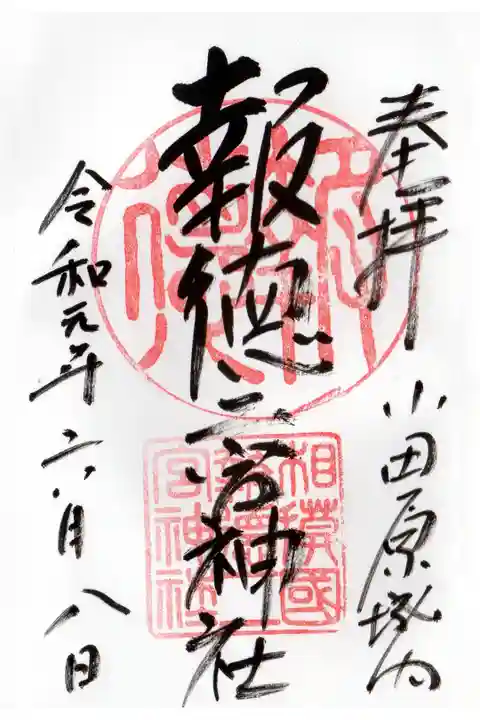 奉拝 小田原城内
報徳二宮神社
令和元年六月八日
報徳
相模國
報徳二
宮神社